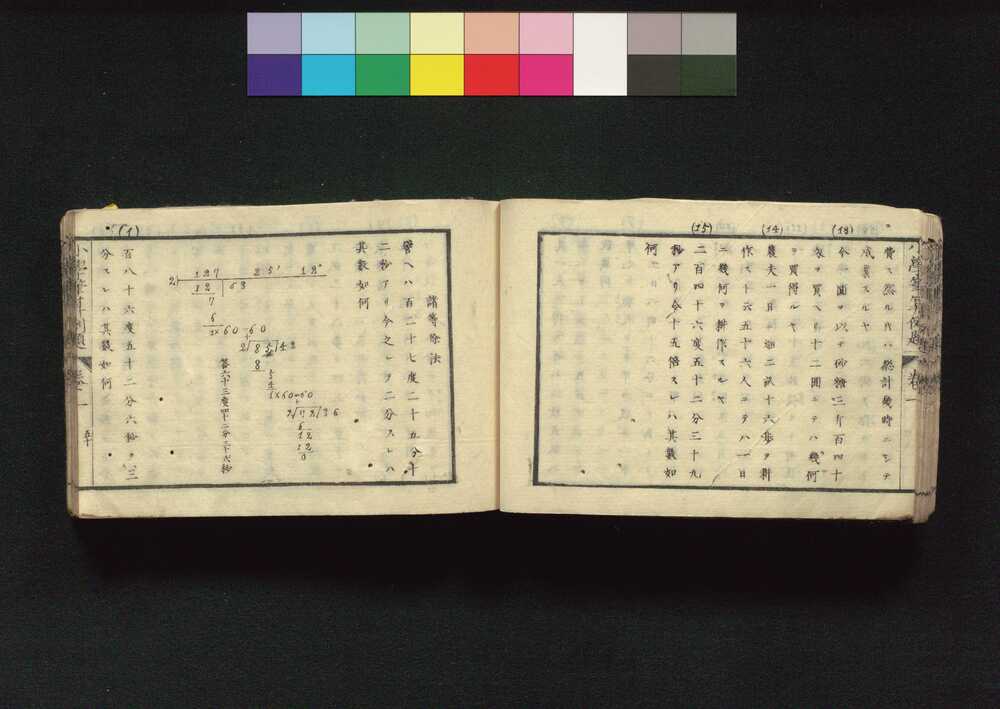 費ス然ル片ハ総計幾時ニシテ
成業スルヤ
(13) 今一圓ヲ以テ砂糖三斤百四十
ヲ買ヘリ十二圓ニテハ幾何
ヲ買得ルヤ
(14) 農夫一日ニ三畝十六歩ヲ耕
作ス十六五十六人ニテハ一日
ニ幾何ヲ耕作スルヤ
(15) 二百四十六度五十二分三十九
秒アリ今十五倍スレハ其数如
何
諸等除法
譬ヘハ百二十七度二十五分十
二秒アリ今之レヲ二分スレハ
其数如何
127 25' 12"
2
12 63
7
6
1×60=60
2)85(42
8
5
4
1×60=60
2)72(36
6
12
12
0
答六十三度四十二分三十六秒
(1) 百八十六度五十二分六秒ヲ三
分スレハ其数如何
卷一